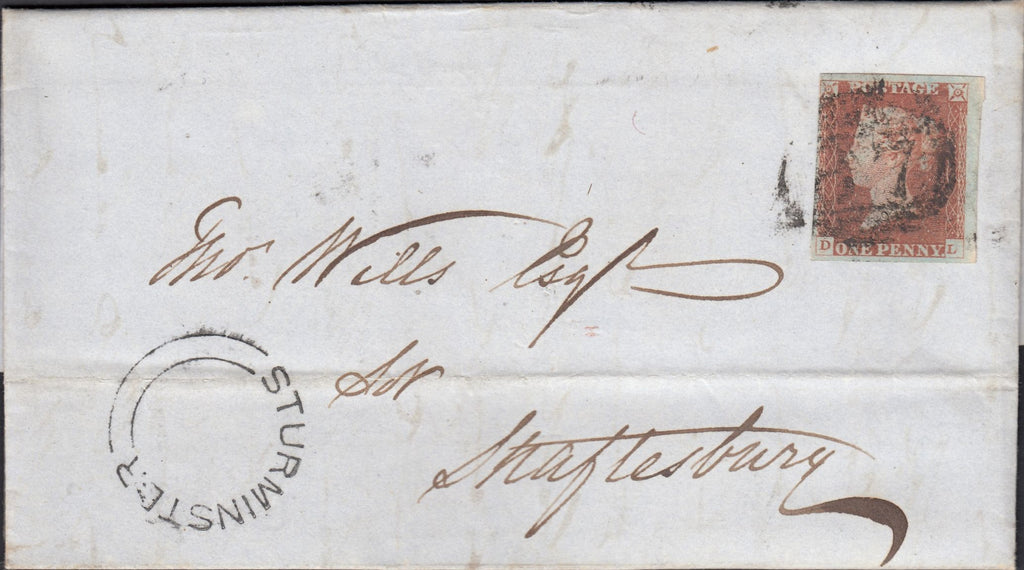 POSTAGE
D ONE PENNY L
Thos. Wills Esqr
Solr
Shaftesbury
STURMINSTER